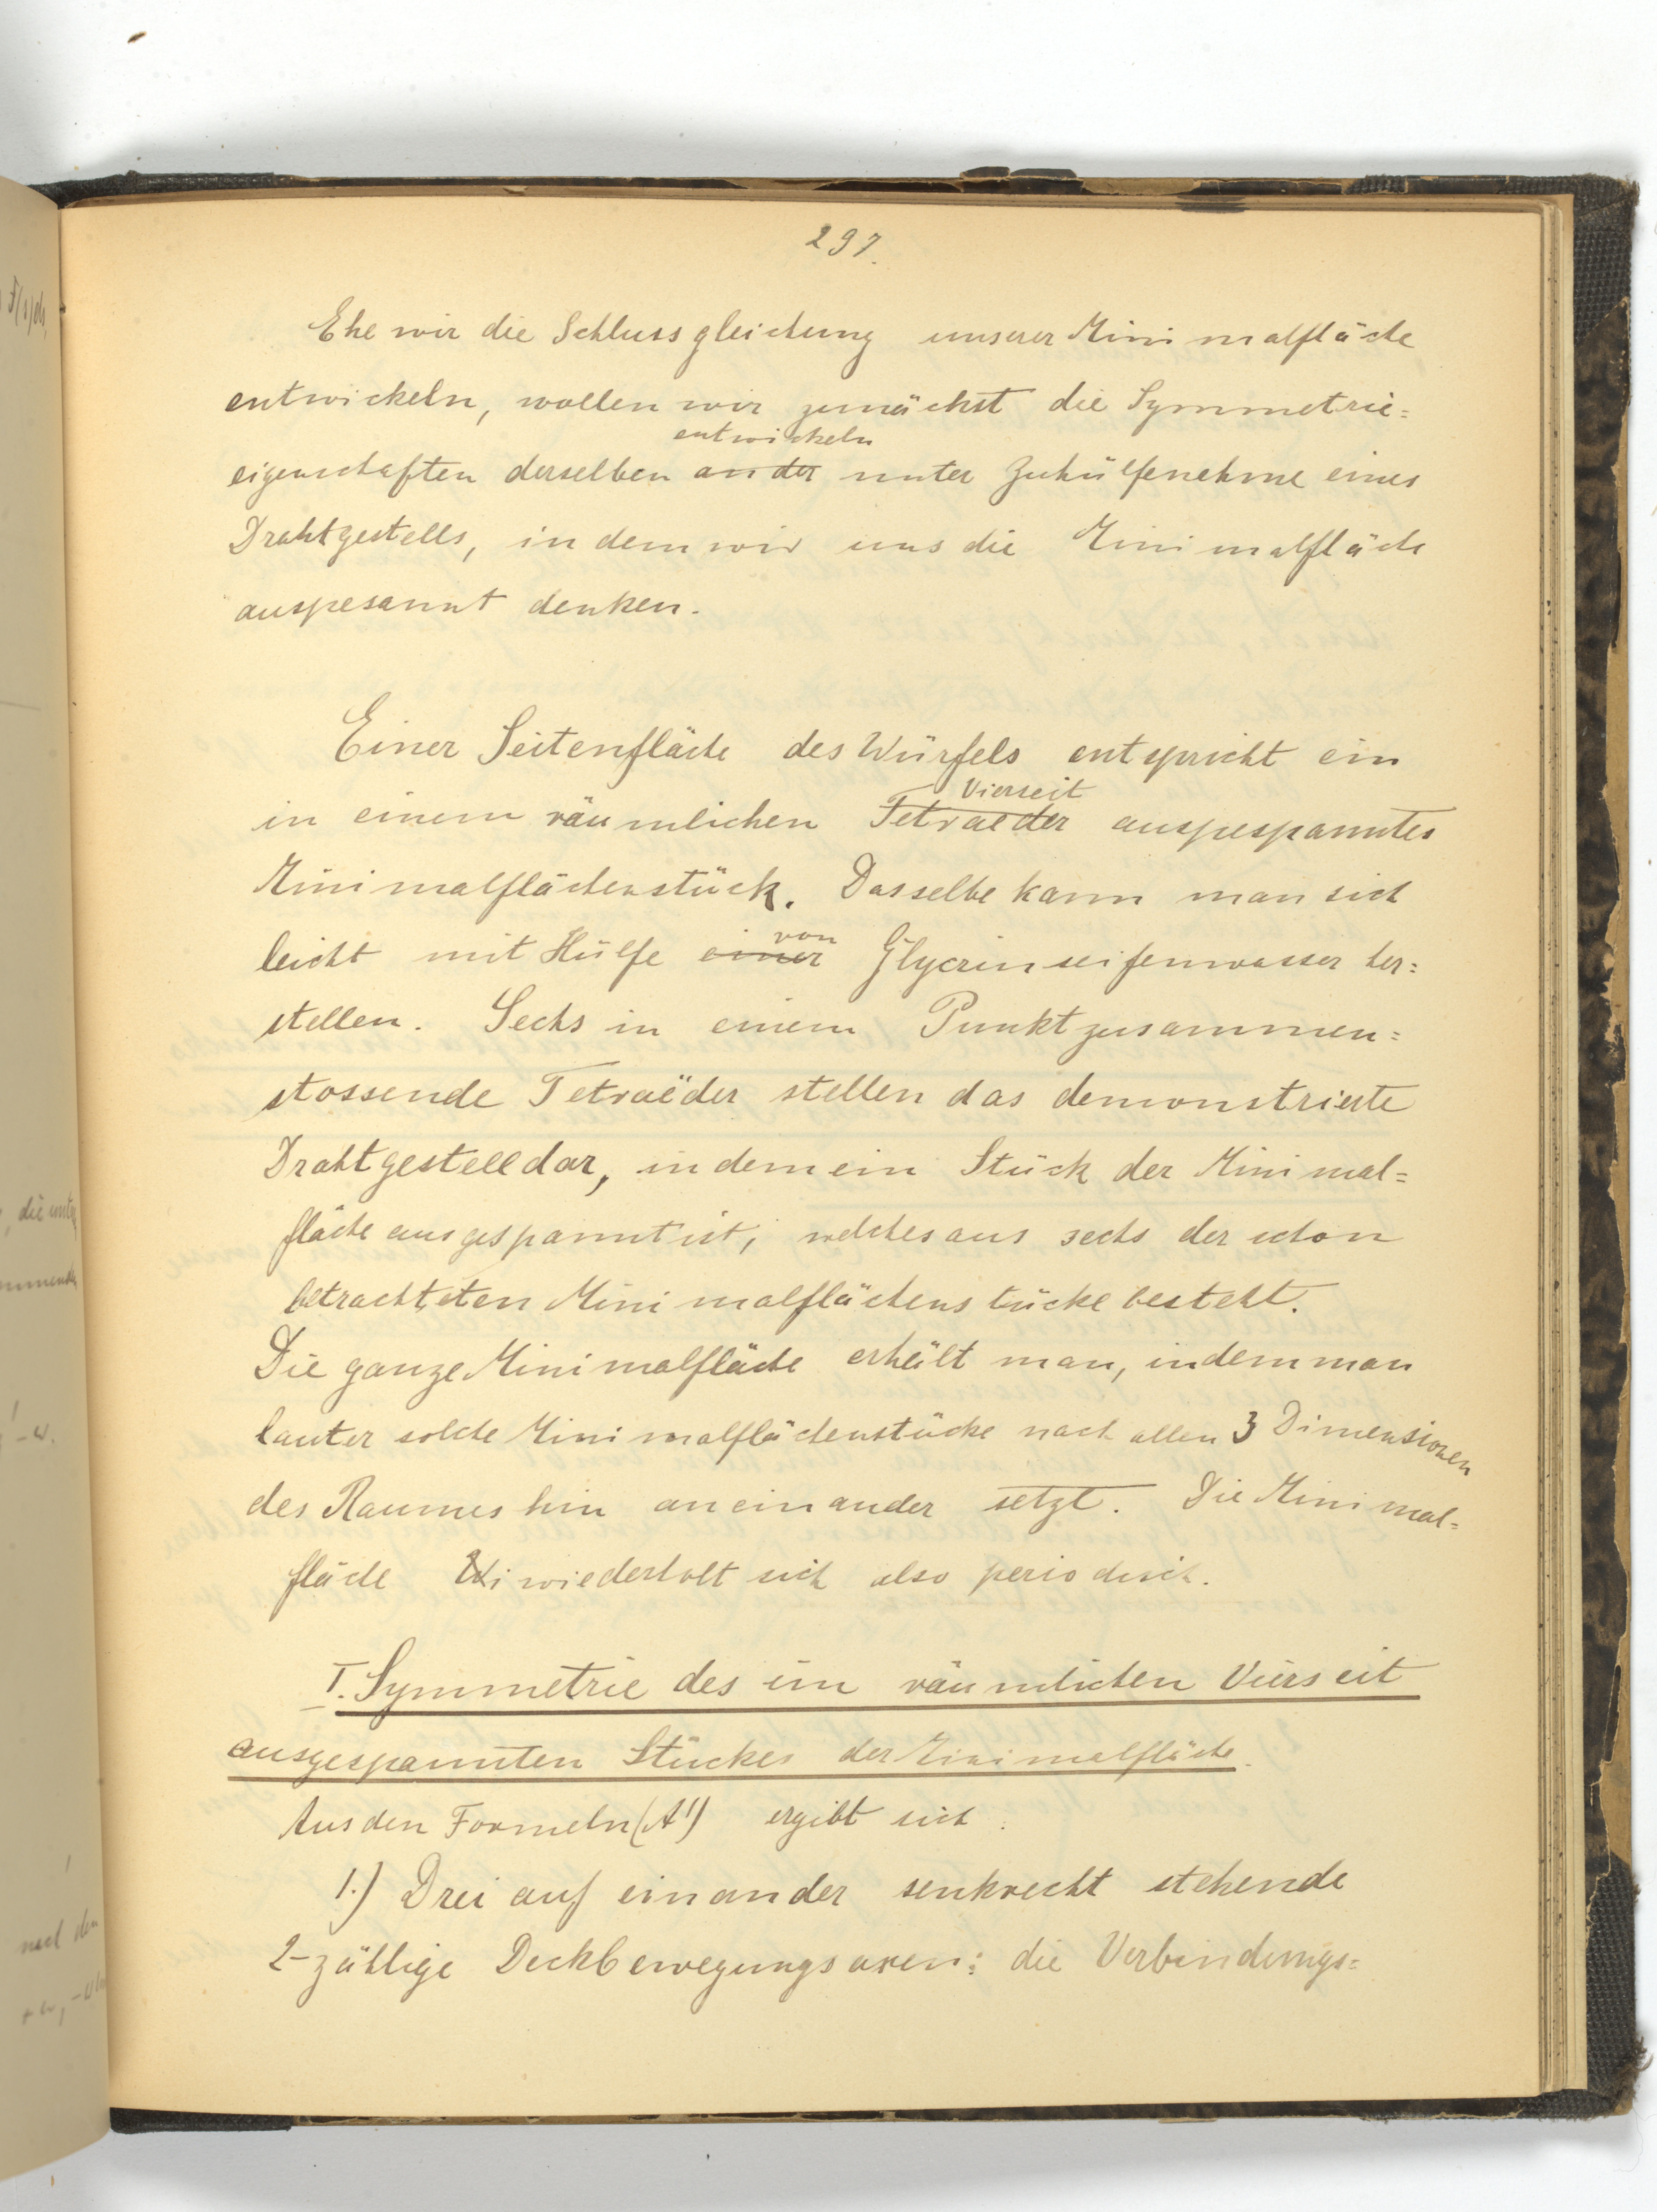 297.
Ehe wir die Schlussgleichung unserer Minimalfläche
entwickeln, wollen wir zunächst die Symmetrie=
entwickeln
eigenschaften derselben an der unter Zuhülfenehme eines
Drahtgestells, in dem wir uns die Minimalfläche
ausgesannt denken.
Einer Seitenfläche des Würfels entspricht ein
Vierseit
in einem räumlichen Tetraeder ausgespanntes
Minimalflächenstück. Dasselbe kann man sich
von
leicht mit Hülfe einer Glycerinseifenwasser her=
stellen. Sechs in einem Punkt zusammen=
stossende Tetraëder stellen das demonstrierte
Drahtgestell dar, in dem ein Stück der Minimal=
fläche ausgespannt ist, welches aus sechs der schon
betrachteten Minimalflächenstücke besteht.
Die ganze Minimalfläche erhält man, indem man
lauter solche Minimalflächenstücke nach allen 3 Dimensionen
des Raumes hin aneinander setzt. Die Minimal=
fläche wiederholt sich also periodisch.
I. Symmetrie des im räumlichen Vierseit
ausgespannten Stückes der Minimalfläche.
Aus den Formeln (A') ergibt sich:
1.) Drei auf einander senkrecht stehende
2-zählige Deckbewegungsaxen: die Verbindungs=